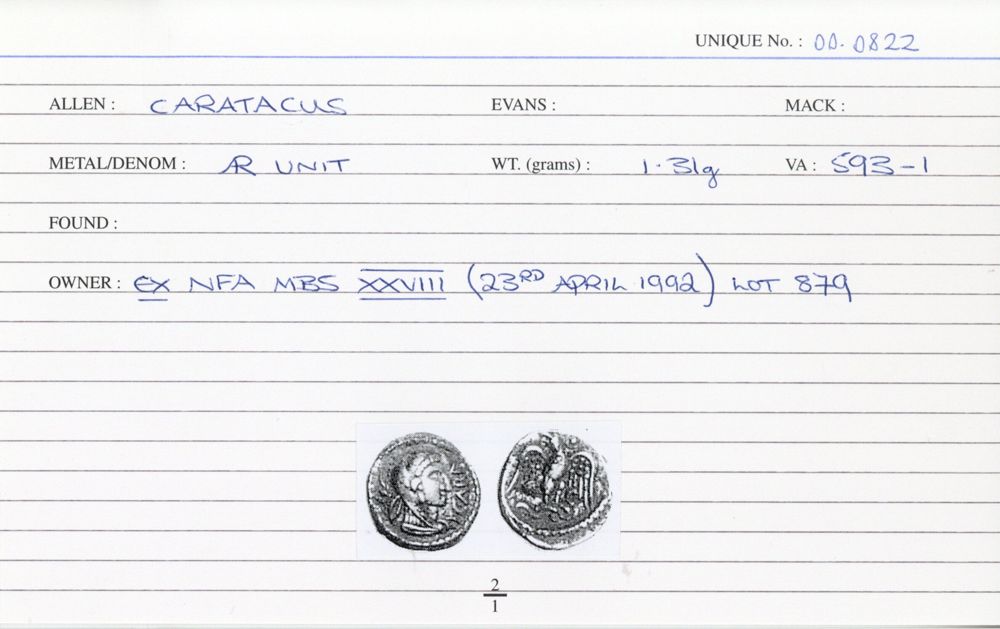 UNIQUE No. : 00.0822
ALLEN : CARATACUS EVANS : MACK :
METAL/DENOM : AR UNIT WT. (grams) : 1.31g VA : 593-1
FOUND :
OWNER : EX NFA MBS XXVIII (23RD APRIL 1992) LOT 879
2
1